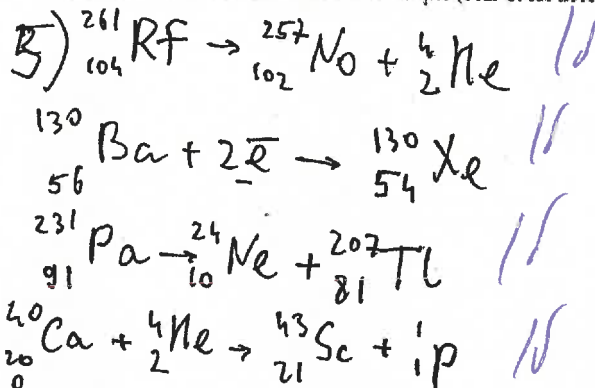 Б) ²⁶¹₁₀₄Rf → ²⁵⁷₁₀₂No + ⁴₂He 1б
¹³⁰₅₆Ba + 2e̅ → ¹³⁰₅₄Xe 1б
²³¹₉₁Pa → ²⁴₁₀Ne + ²⁰⁷₈₁Tl 1б
⁴⁰₂₀Ca + ⁴₂He → ⁴³₂₁Sc + ¹₁p 1б